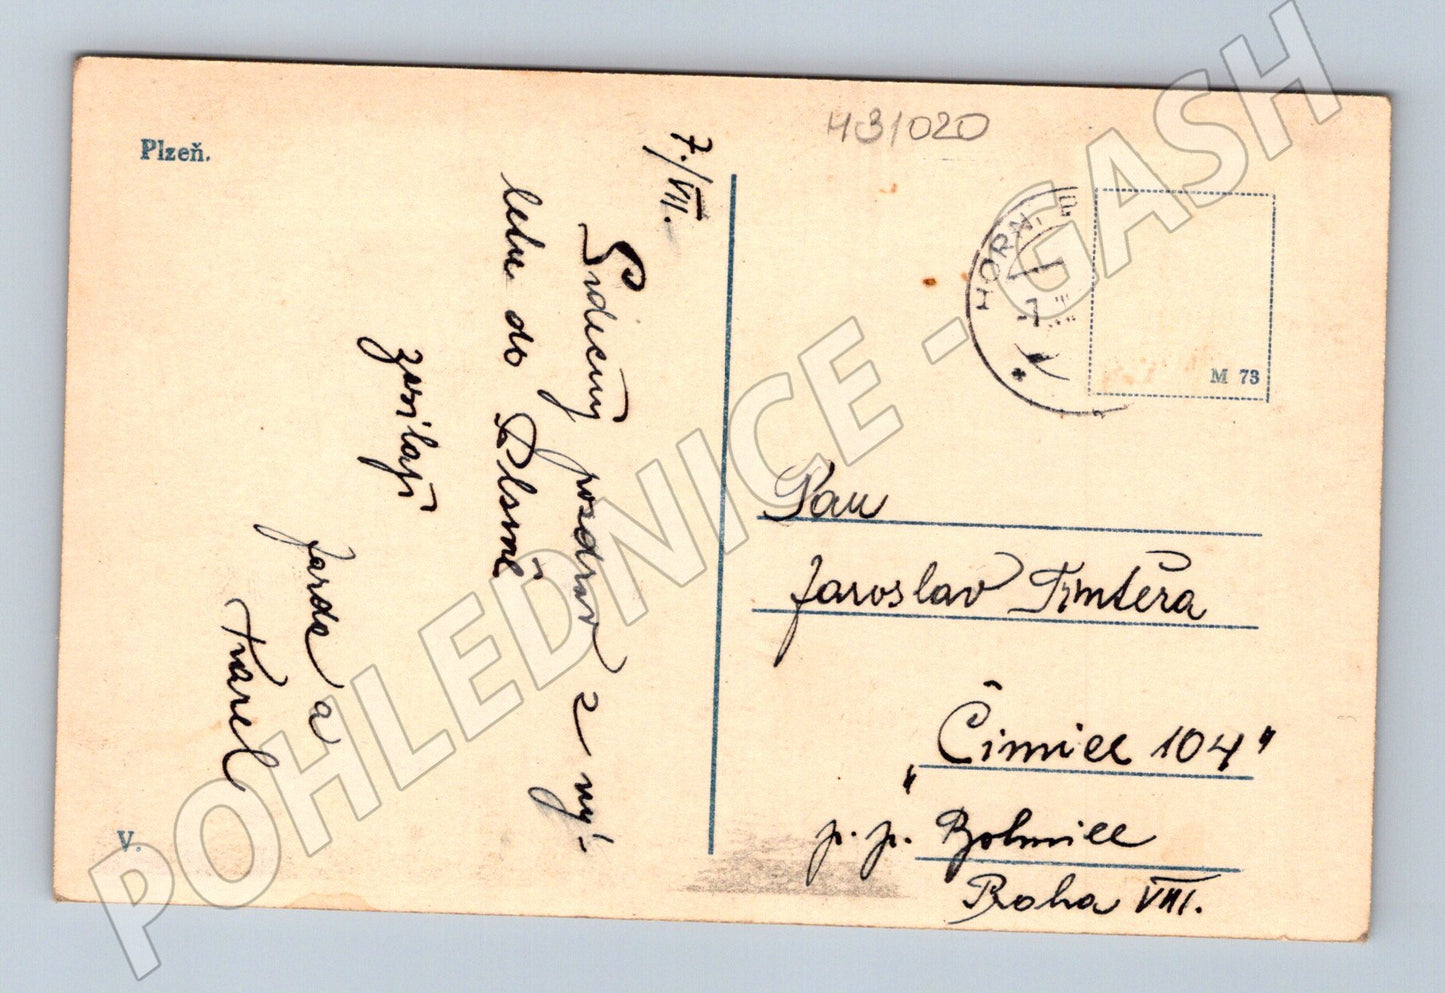 Plzeň.
431020
7./VII.
Srdečný pozdrav z vý-
letu do Plsně
zasílají
Jarda a
Karel
V.
HORN
7
M 73
Pan
Jaroslav
"Čimice 104"
p. p. Bohnice
Praha VIII.
POHLEDNICE - GASH